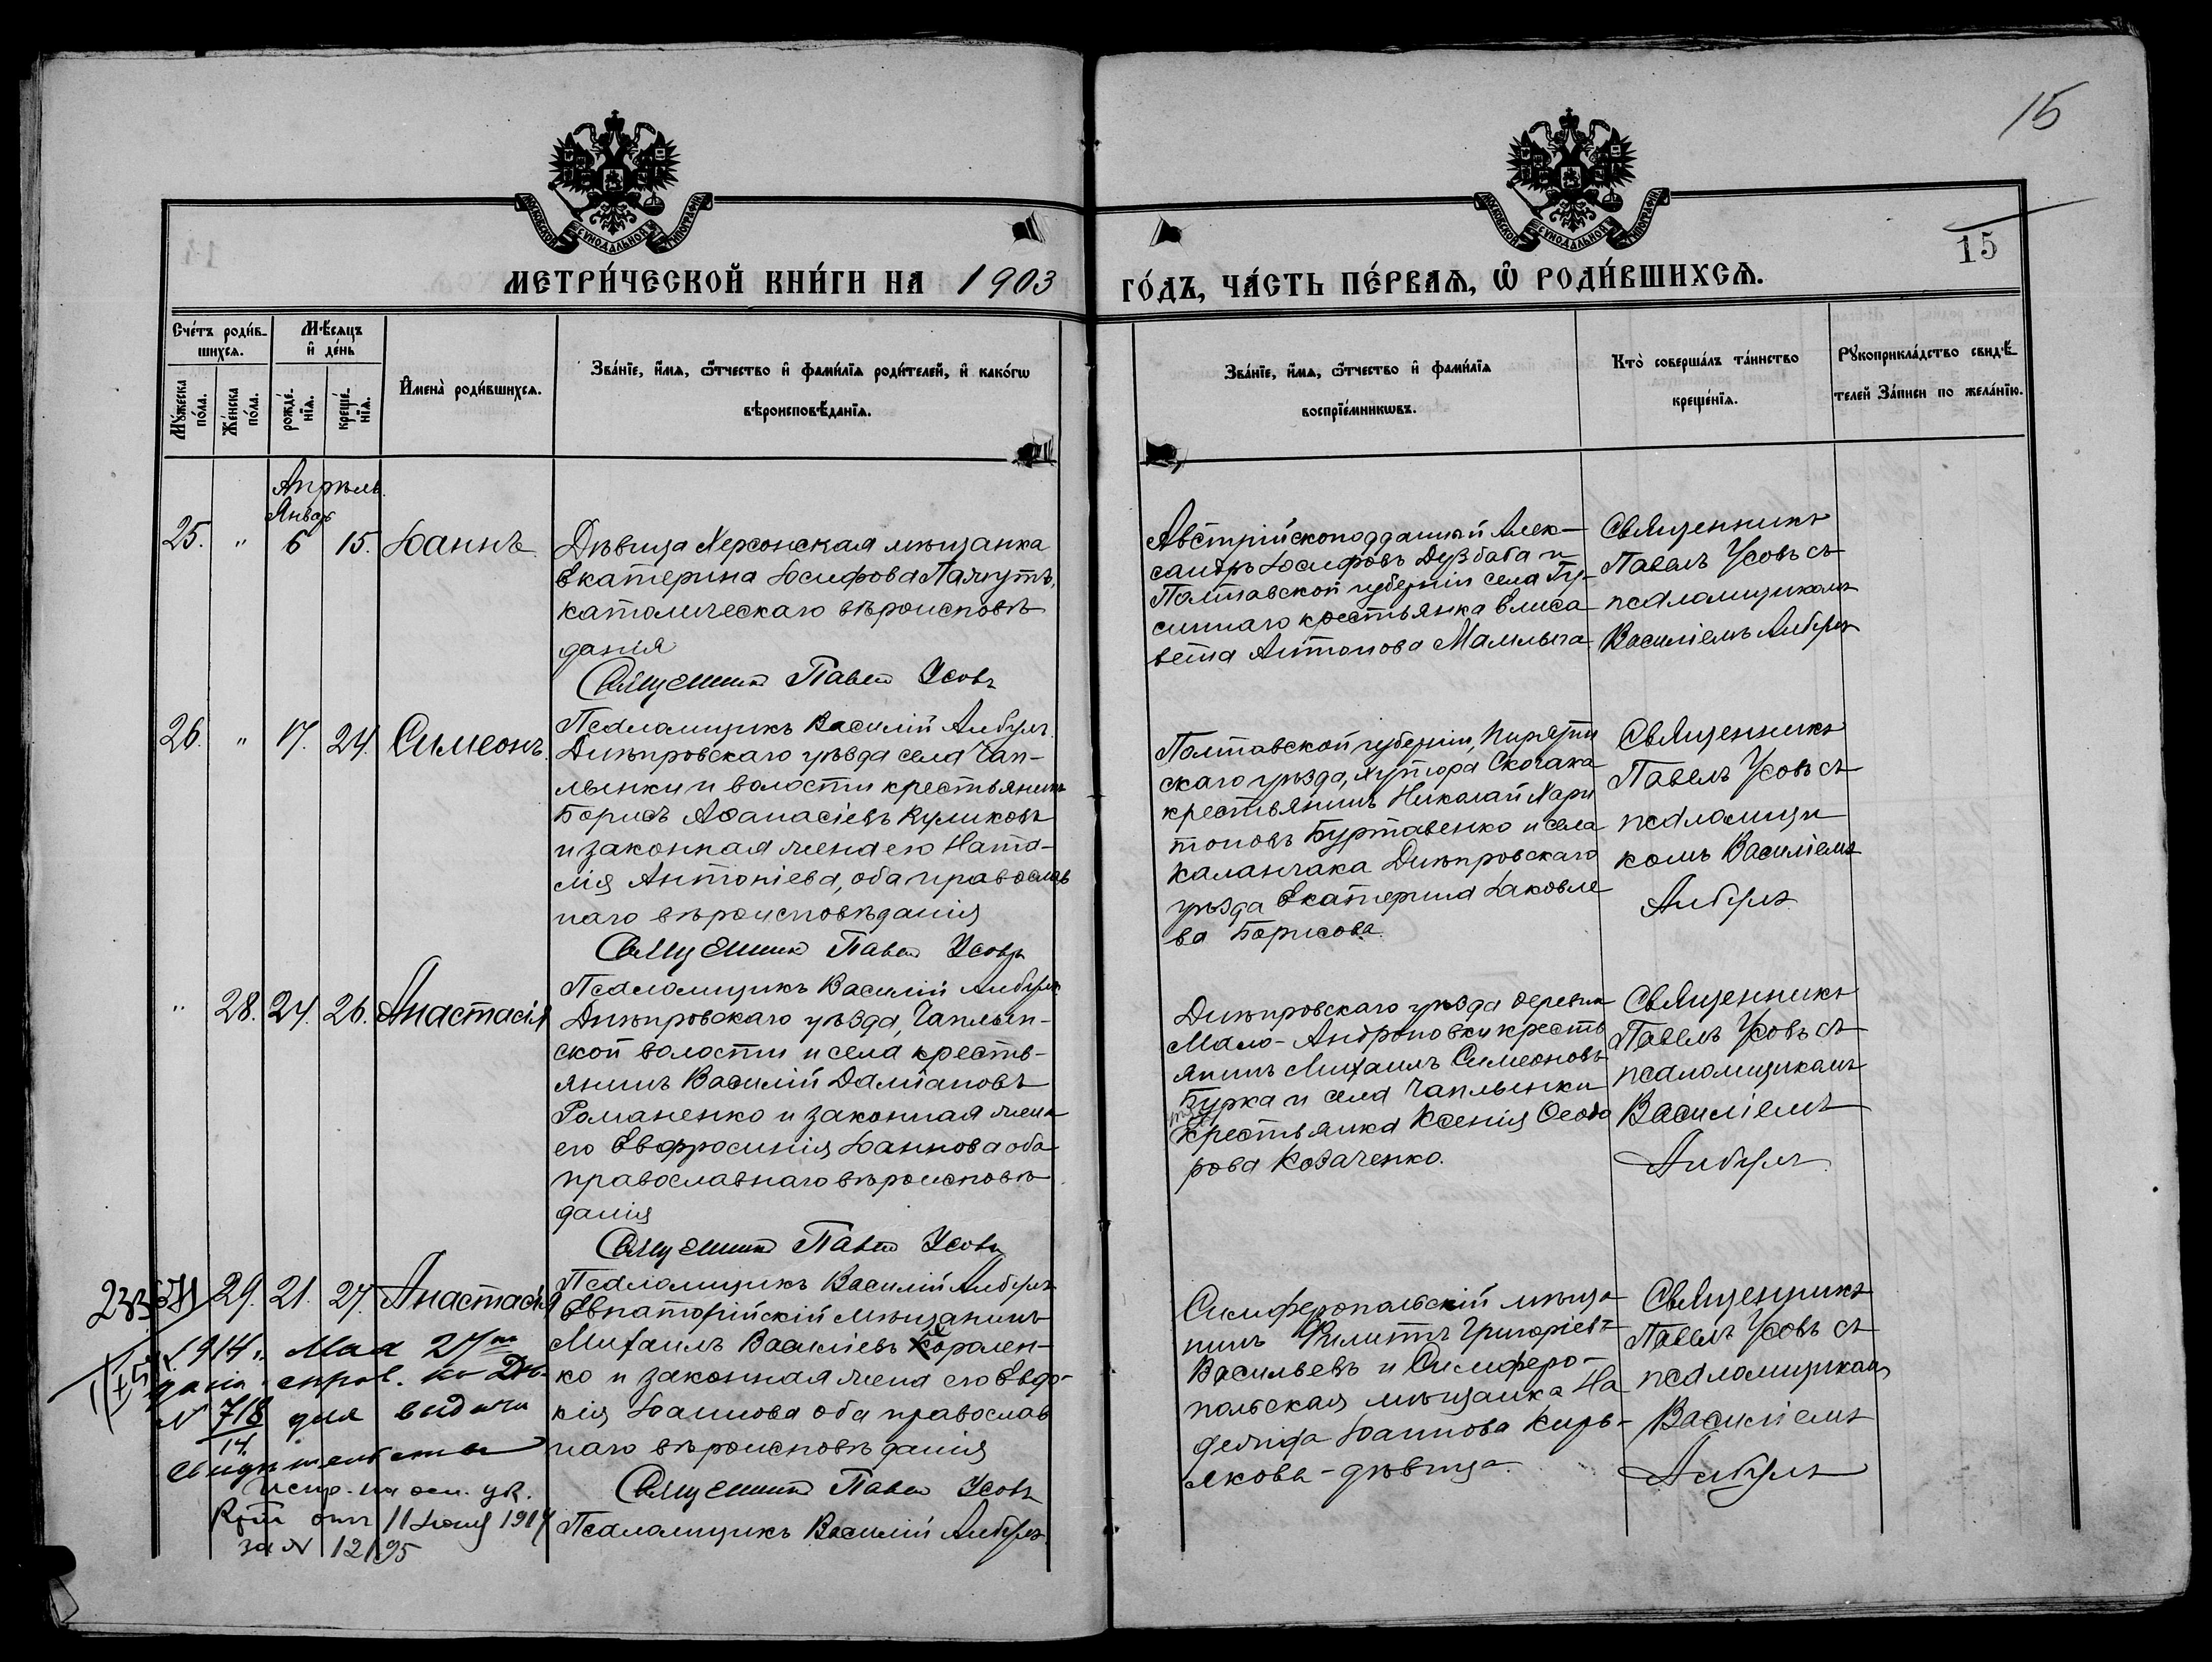 15
15
МОСКОВСКОЙ СѴНОДАЛЬНОЙ ТИПОГРАФІИ
МОСКОВСКОЙ СѴНОДАЛЬНОЙ ТИПОГРАФІИ
МЕТРИ́ЧЕСКОЙ КНИ́ГИ НА 1903
ГО́ДЪ, ЧА́СТЬ ПЕ́РВАѦ, Ѡ РОДИ́ВШИХСѦ.
Сче́тъ роди́в-
шихсѧ.
Мꙋ́жеска по́ла.
Же́нска по́ла.
Мѣ́сѧцъ
и҆ де́нь
рожде́-
нїѧ.
креще́-
нїѧ.
И҆мена̀ роди́вшихсѧ.
Зва́нїе, и҆́мѧ, ѻ҆́тчество и҆ фами́лїѧ роди́телей, и҆ како́гѡ
вѣроисповѣ́данїѧ.
Зва́нїе, и҆́мѧ, ѻ҆́тчество и҆ фами́лїѧ
воспрїе́мникѡвъ.
Кто̀ соверша́лъ та́инство
креще́нїѧ.
Рꙋкоприкла́дство свидѣ́-
телей за́писи по жела́нїю.
Апрѣль
Январь
25. " 6 15. Іоаннъ
Дѣвица Херсонская мѣщанка
Екатерина Іосифова
католическаго вѣроисповѣ-
данія
Священникъ Павелъ Усовъ
Псаломщикъ Василій
Австрійскоподданный Алек-
сандръ Іосифовъ и
Полтавской губерніи села Гу-
синнаго крестьянка Елиса-
вета Антонова
Священникъ
Павелъ Усовъ съ
псаломщикомъ
Василіемъ
26. " 17. 24. Симеонъ
Днѣпровскаго уѣзда села Чап-
лынки и волости крестьянинъ
Борисъ Аѳанасіевъ Куликовъ
и законная жена его Ната-
лія Антоніева, оба православ
наго вѣроисповѣданія
Священникъ Павелъ Усовъ
Псаломщикъ Василій
Полтавской губерніи, Пирятин
скаго уѣзда, хутора
крестьянинъ Николай Хари
тоновъ Буртавенко и села
Каланчака Днѣпровскаго
уѣзда Екатерина Іаковле
ва Борисова.
Священникъ
Павелъ Усовъ съ
псаломщи
комъ Василіемъ
" 28. 24. 26. Анастасія
Днѣпровскаго уѣзда, Чаплын-
ской волости и села кресть-
янинъ Василій Даміановъ
Романенко и законная жена
его Евфросинія Іоаннова оба
православнаго вѣроисповѣ-
данія
Священникъ Павелъ Усовъ
Псаломщикъ Василій
Днѣпровскаго уѣзда деревни
Мало-Андроновки кресть
янинъ Михаилъ Симеоновъ
Бурка и села Чаплынки
крестьянка Ксенія Ѳеодо
рова Козаченко.
Священникъ
Павелъ Усовъ съ
псаломщикомъ
Василіемъ
29. 21. 27. Анастасія
Евпаторійскій мѣщанинъ
Михаилъ Василіевъ Королен-
ко и законная жена его Евдо-
кія Іоаннова оба православ
наго вѣроисповѣданія
Священникъ Павелъ Усовъ
Псаломщикъ Василій
Симферопольскій мѣща-
нинъ Филиппъ Григоріевъ
Васильевъ и Симферо-
польская мѣщанка На
дежда Іоаннова Кирь-
якова - дѣвица.
Священникъ
Павелъ Усовъ съ
псаломщикомъ
Василіемъ
1914 г. Мая 27
дана справ.
№ 718 для выдачи
14.
свидѣтельства
11 Іюня 1914
за № 12195